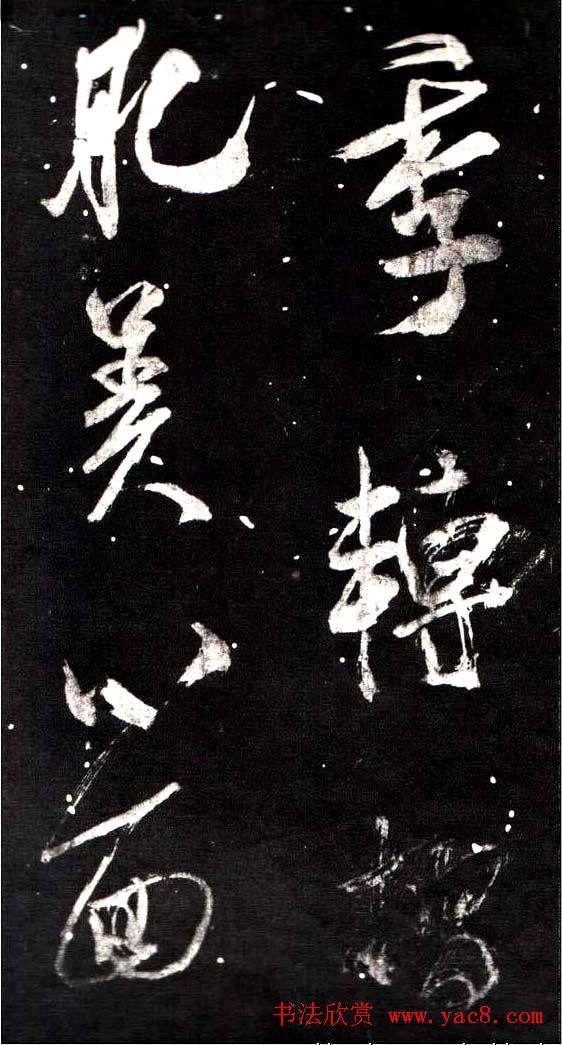 季轉摺
肥美八面
书法欣赏 www.yac8.com